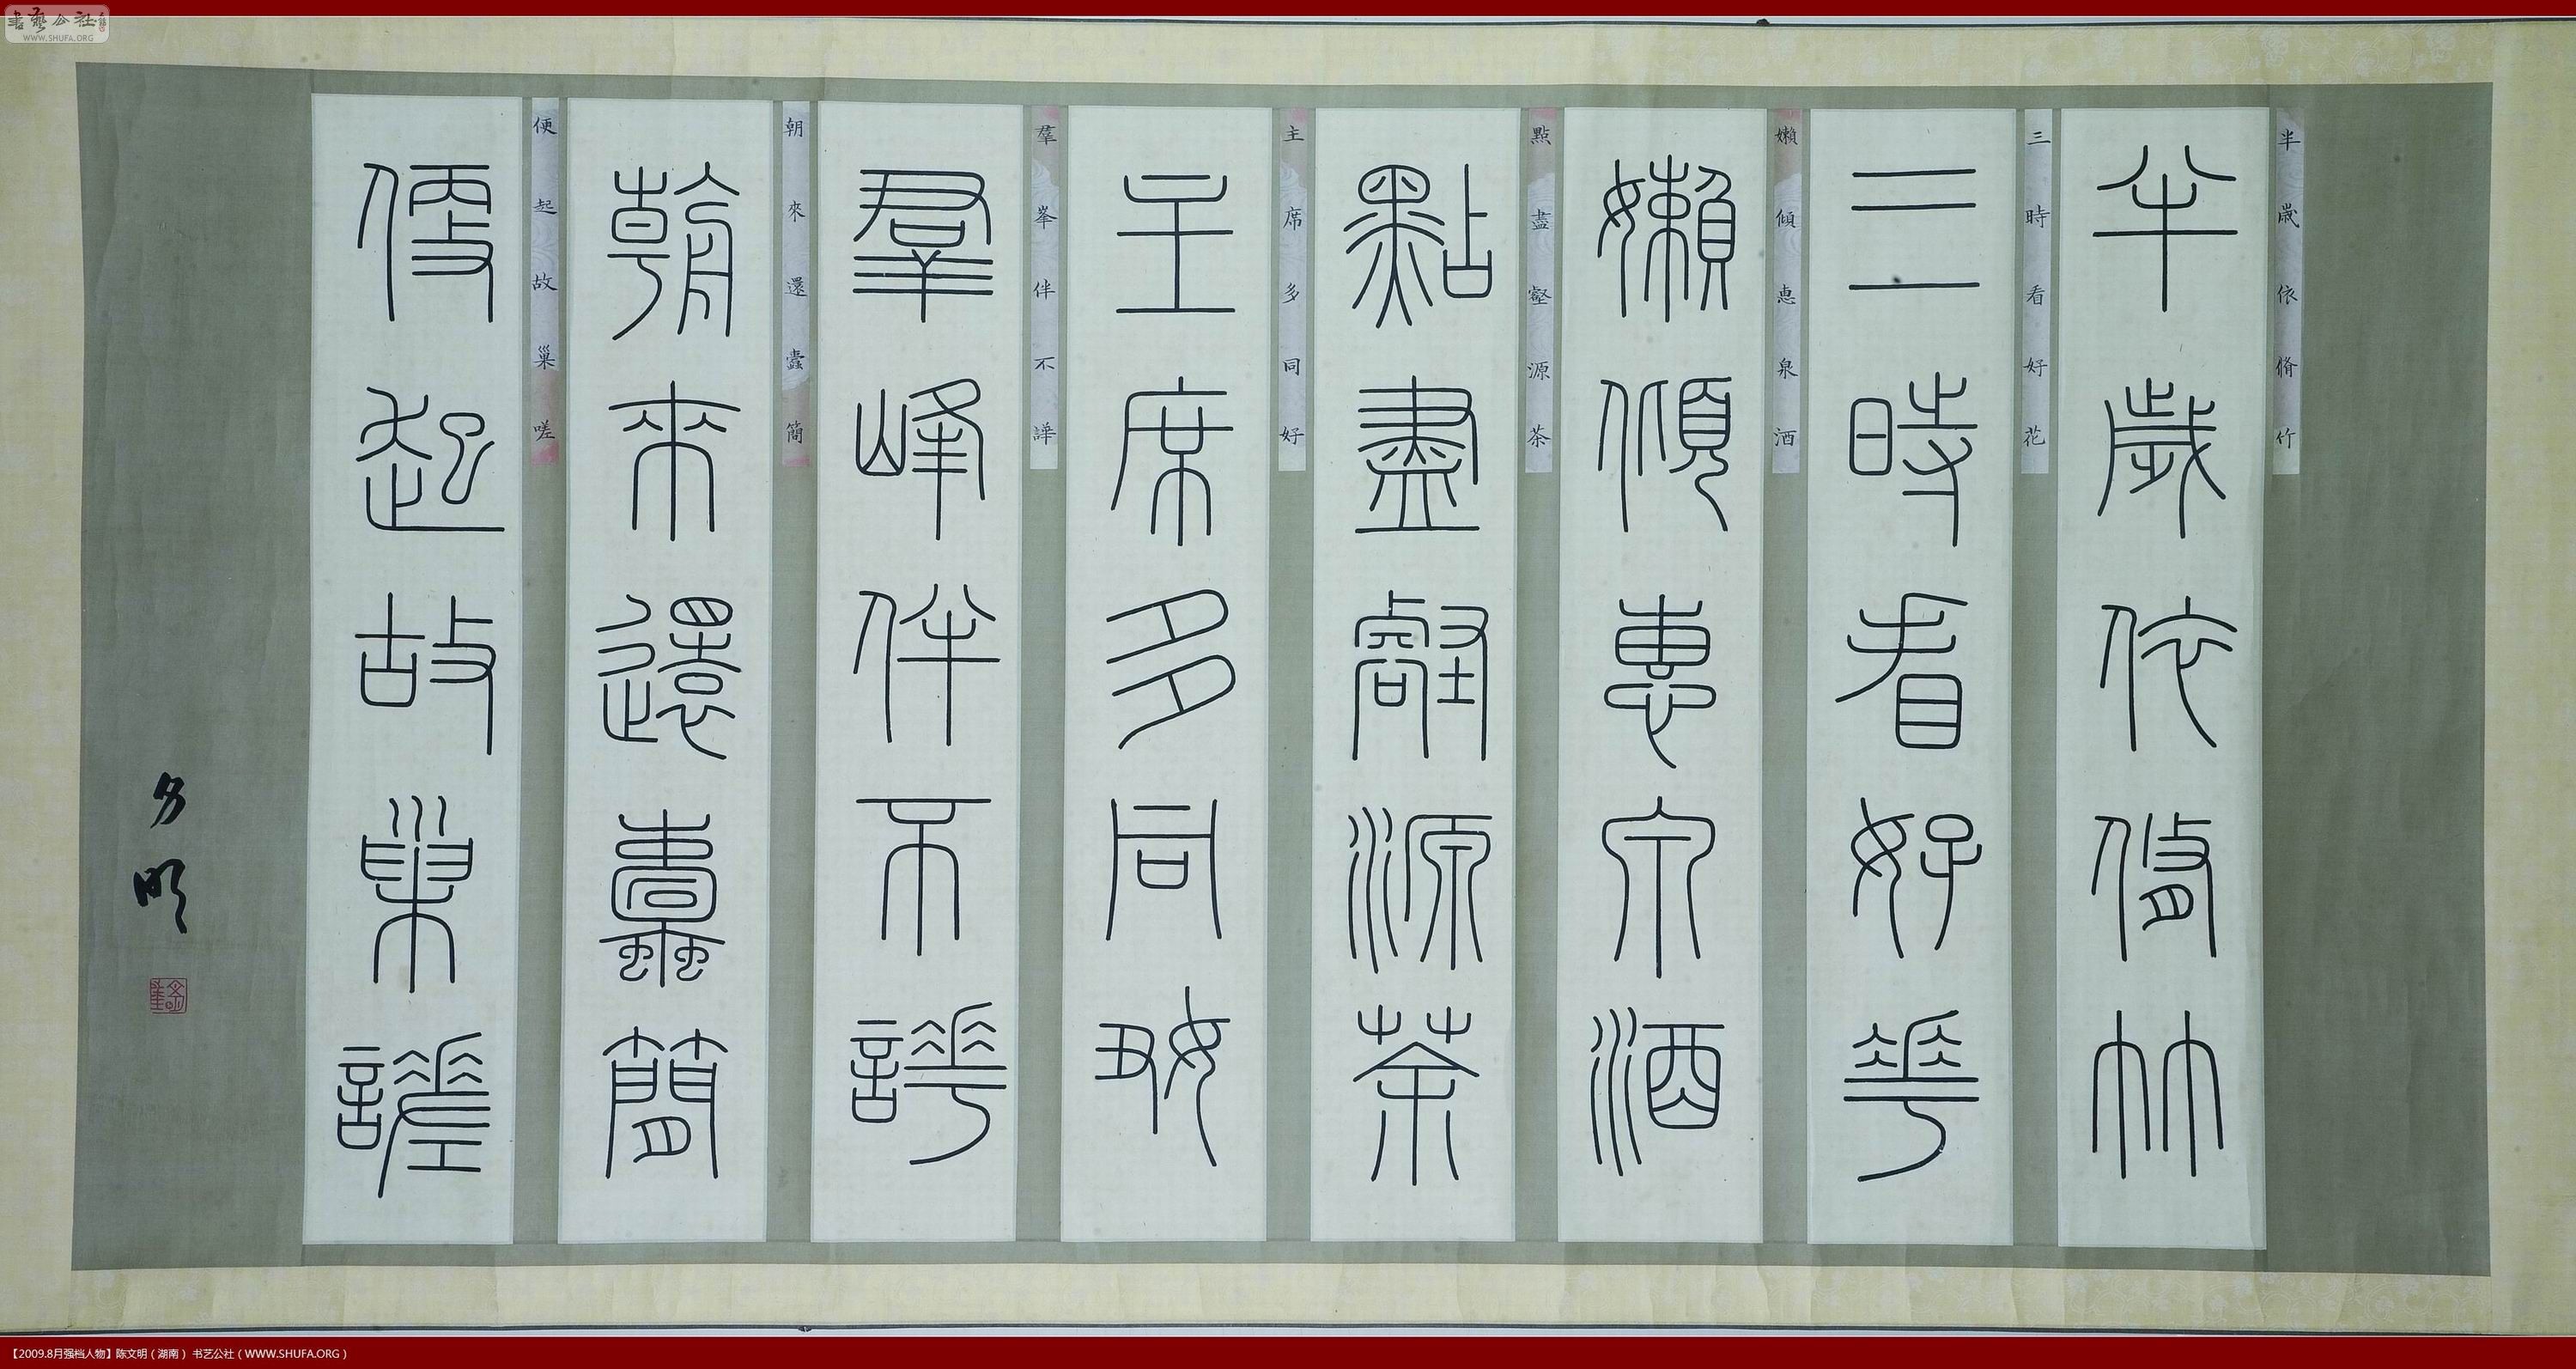 半歲依脩竹
半歲依脩竹
三時看好花
三時看好花
嬾傾惠泉酒
懶傾惠泉酒
點盡壑源茶
點盡壑源茶
主席多同好
主席多同好
羣峰伴不譁
羣峯伴不譁
朝來還蠹簡
朝來還蠹簡
便起故巢嗟
便起故巢嗟
文明
書藝公社
WWW.SHUFA.ORG
【2009.8月强档人物】陈文明（湖南） 书艺公社（WWW.SHUFA.ORG）